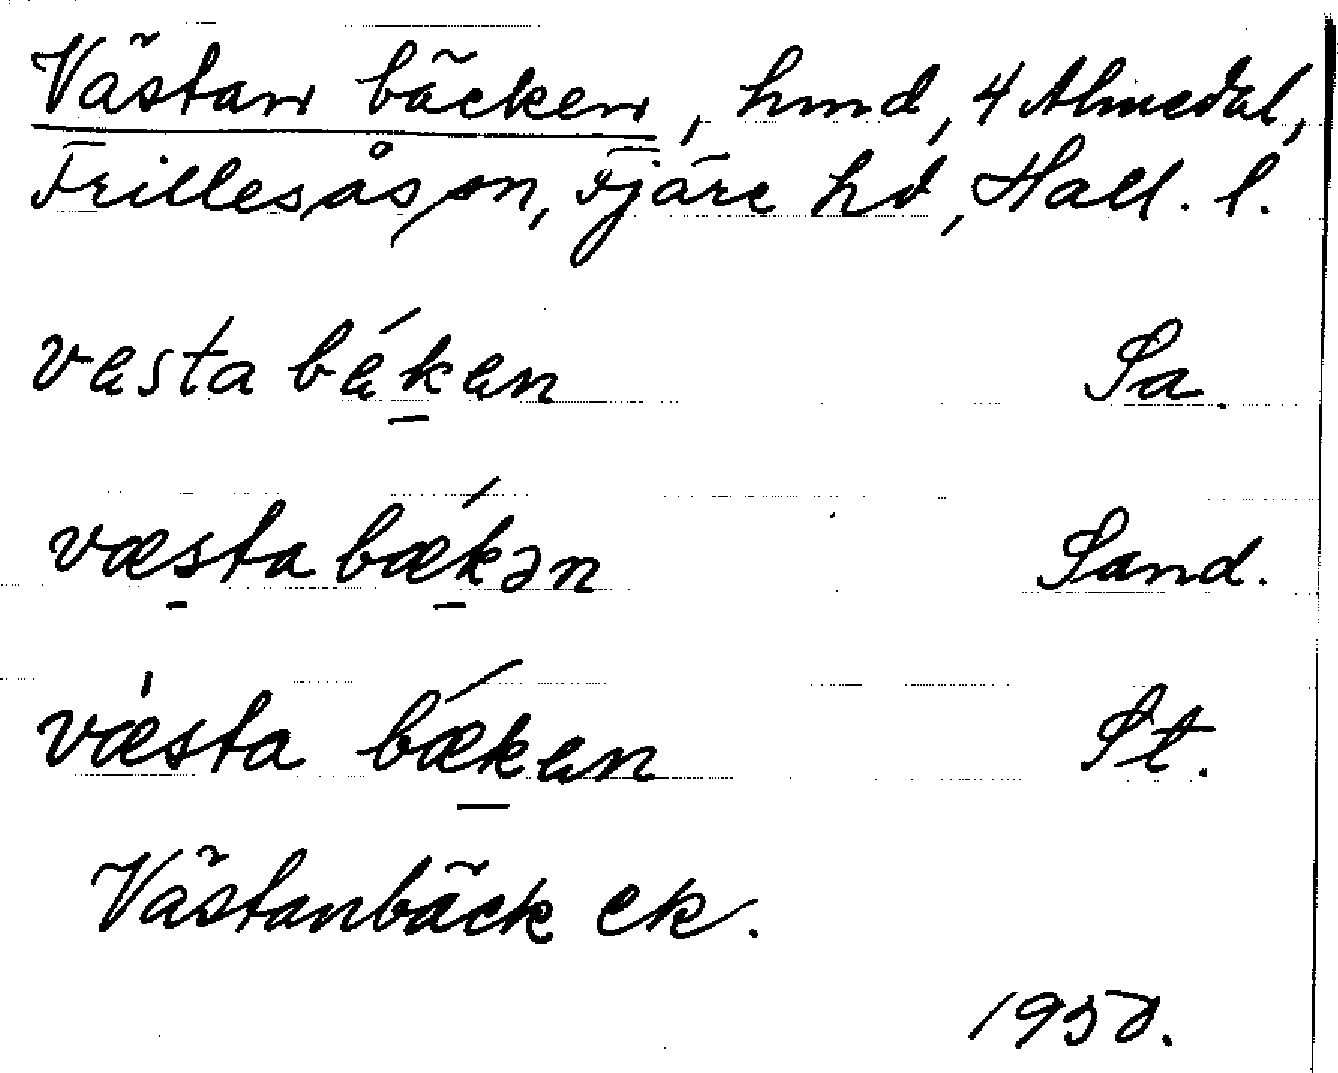 Västan bäcken, hmd, 4 Almedal,
Frillesås sn, Fjäre hd, Hall. l.
västa bäkän Sa.
væsta bækən Sand.
væsta bækän St.
Västanbäck ek.
1950.